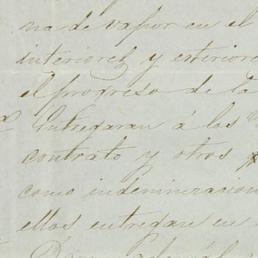 na de vapor en el
interiores y esteriore
el progreso de la
Entregaran á los
contrato y otros
como indemnizacion
ellos entregan en